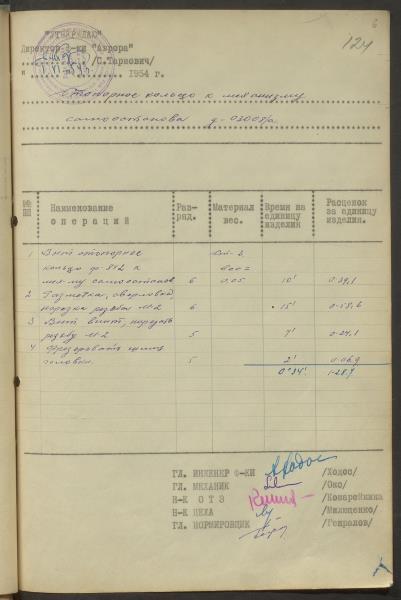 6
"УТВЕРЖДАЮ"
124
Директор ф-ки "Аврора"
/С.Тарнович/
1954 г.
Стопорное кольцо к механизму
самоостанова
№№ пп
Наименование операций
Раз- ряд.
Материал вес.
Время на единицу изделия
Расценок за единицу изделия.
1 Выт. стопорное
кольцо
мех-му самоостанов. 6 0,05 10' 0-39,1
2 Разметка, сверловка,
нарезка резьбы М-2 6 15' 0-58,6
3 Выт. винт, нарезать
резьбу М-2 5 7' 0-24,1
4 Фрезеровать шлиц
головки. 5 2' 0-06,9
0°34' 1-28,7
ГЛ. ИНЖЕНЕР Ф-КИ /Ходос/
ГЛ. МЕХАНИК /Око/
Н-К О Т З /Комарейкина
Н-К ЦЕХА /Милюценко/
ГЛ. НОРМИРОВЩИК /Генралов/